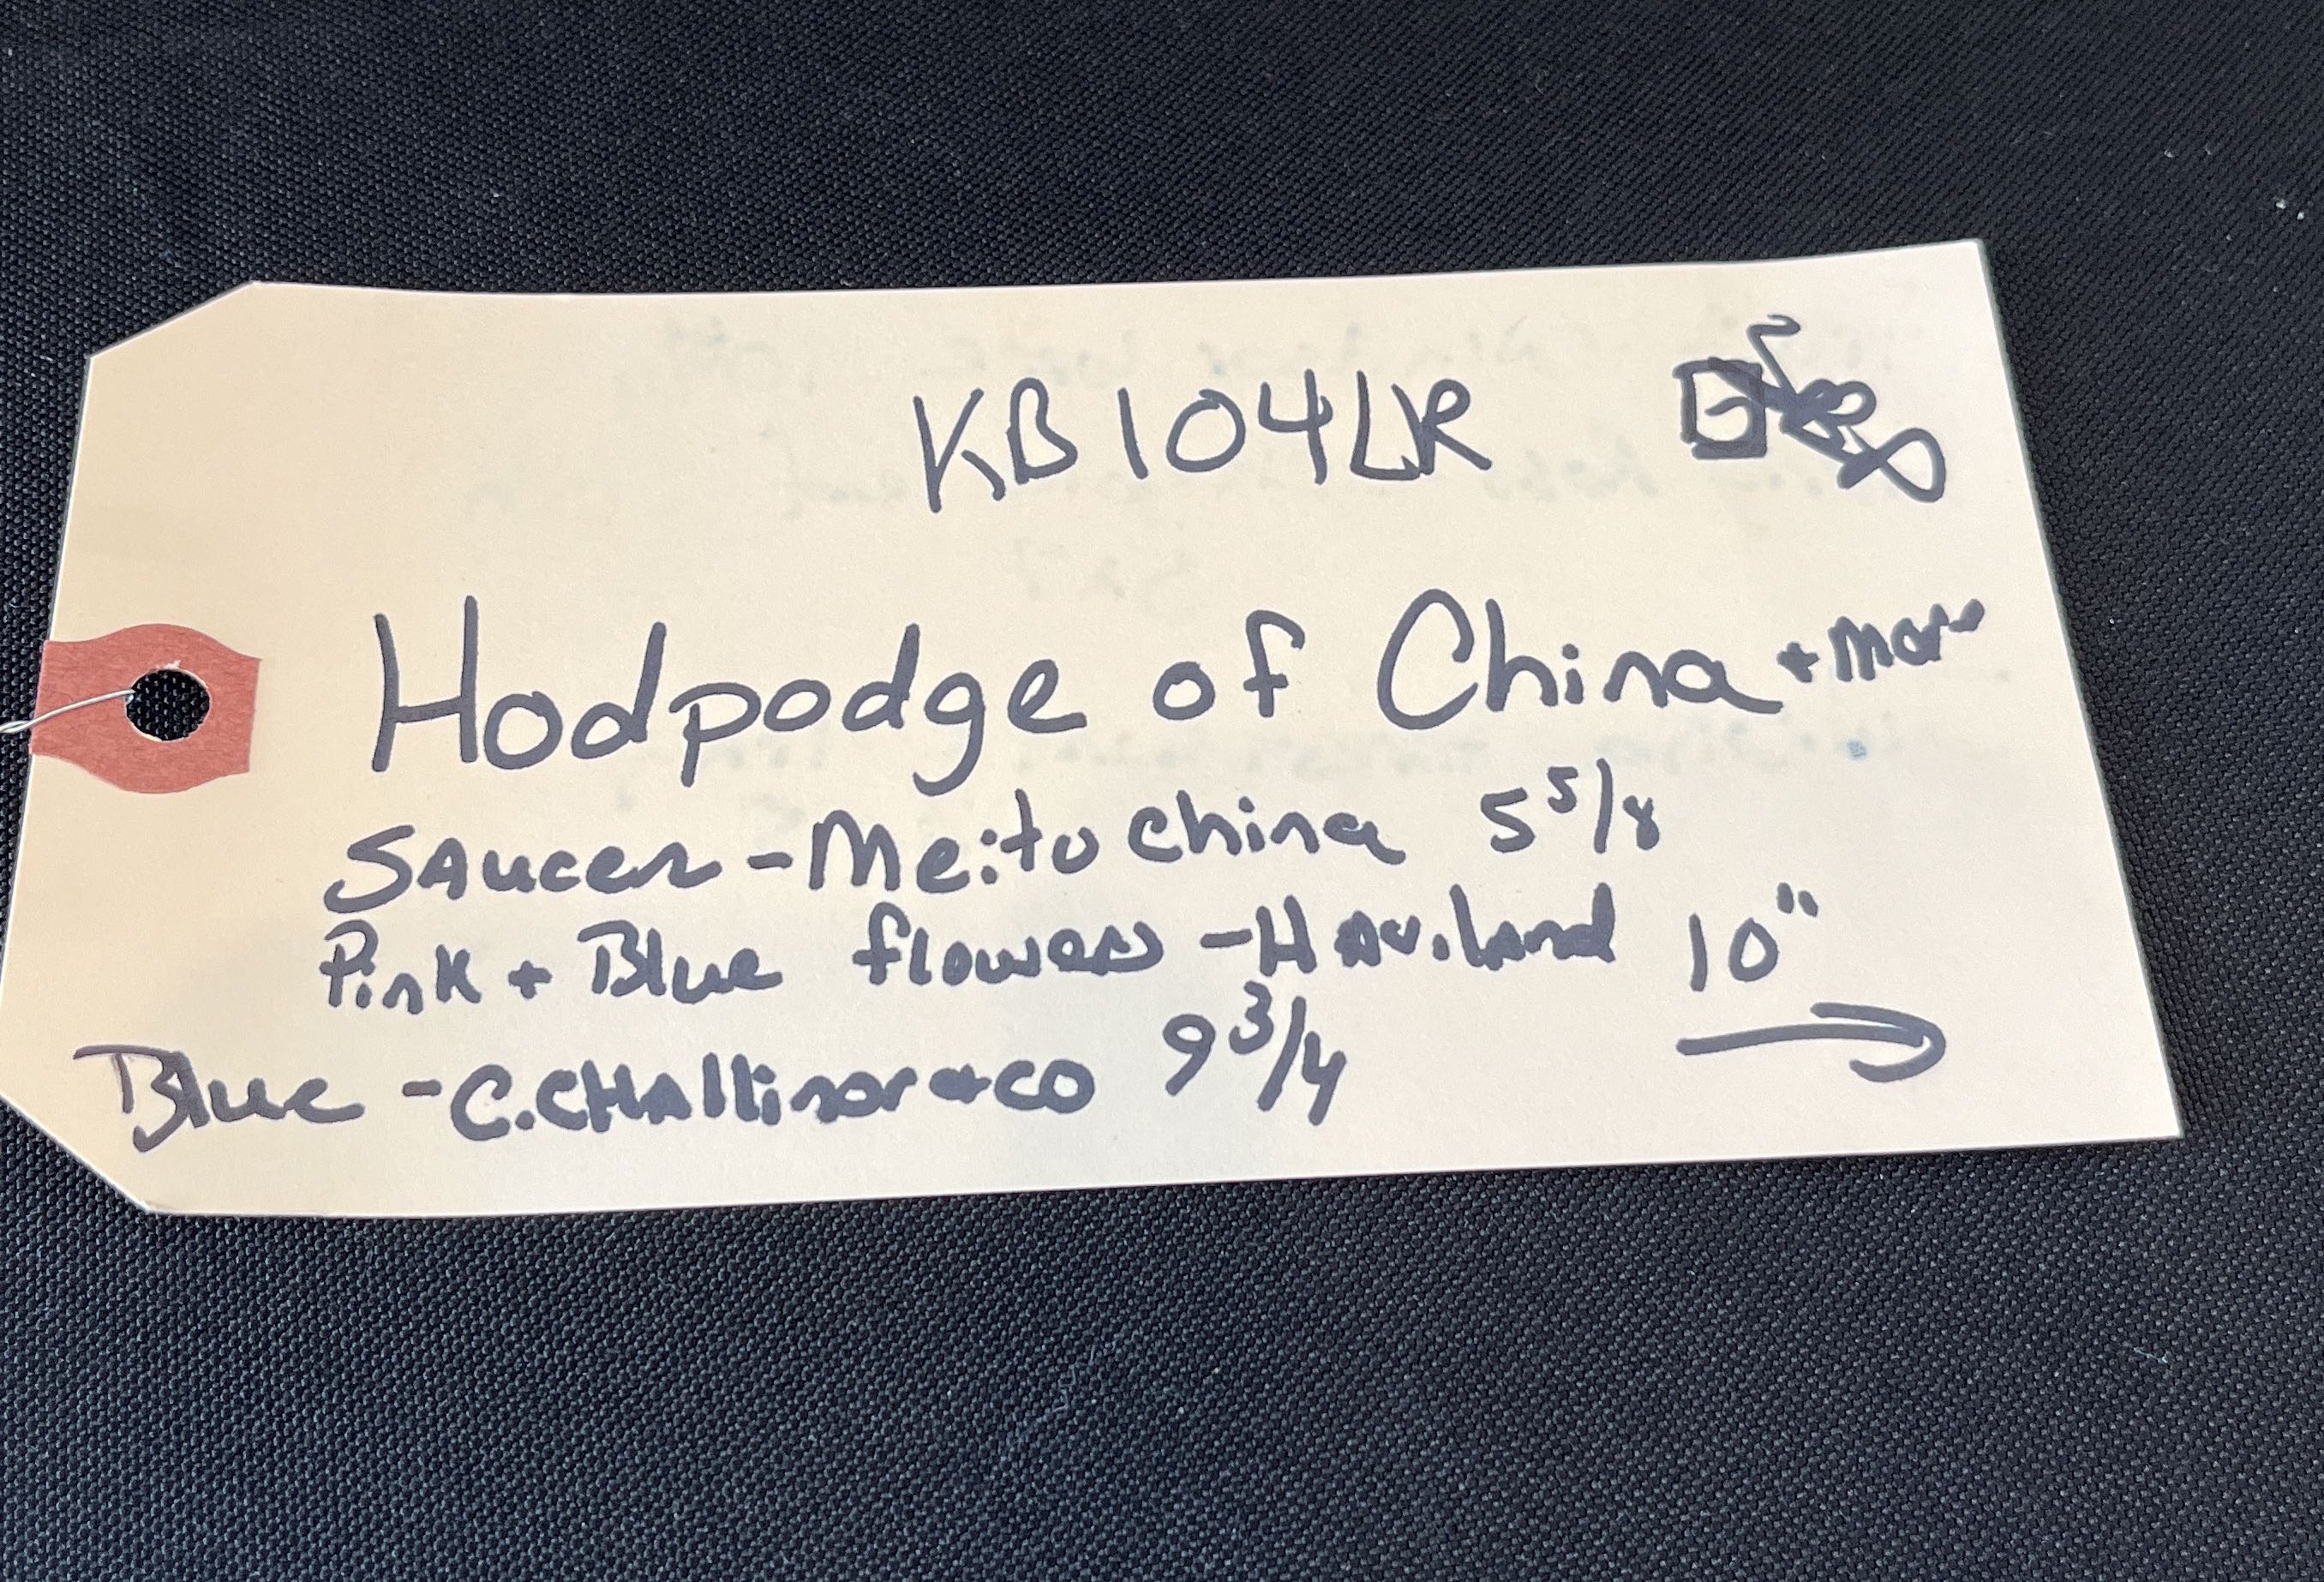 KB104LR
Hodpodge of China + more
Saucer - Meito China 5 5/8
Pink + Blue flowers - Haviland 10"
Blue - C. CHallinor + CO 9 3/4